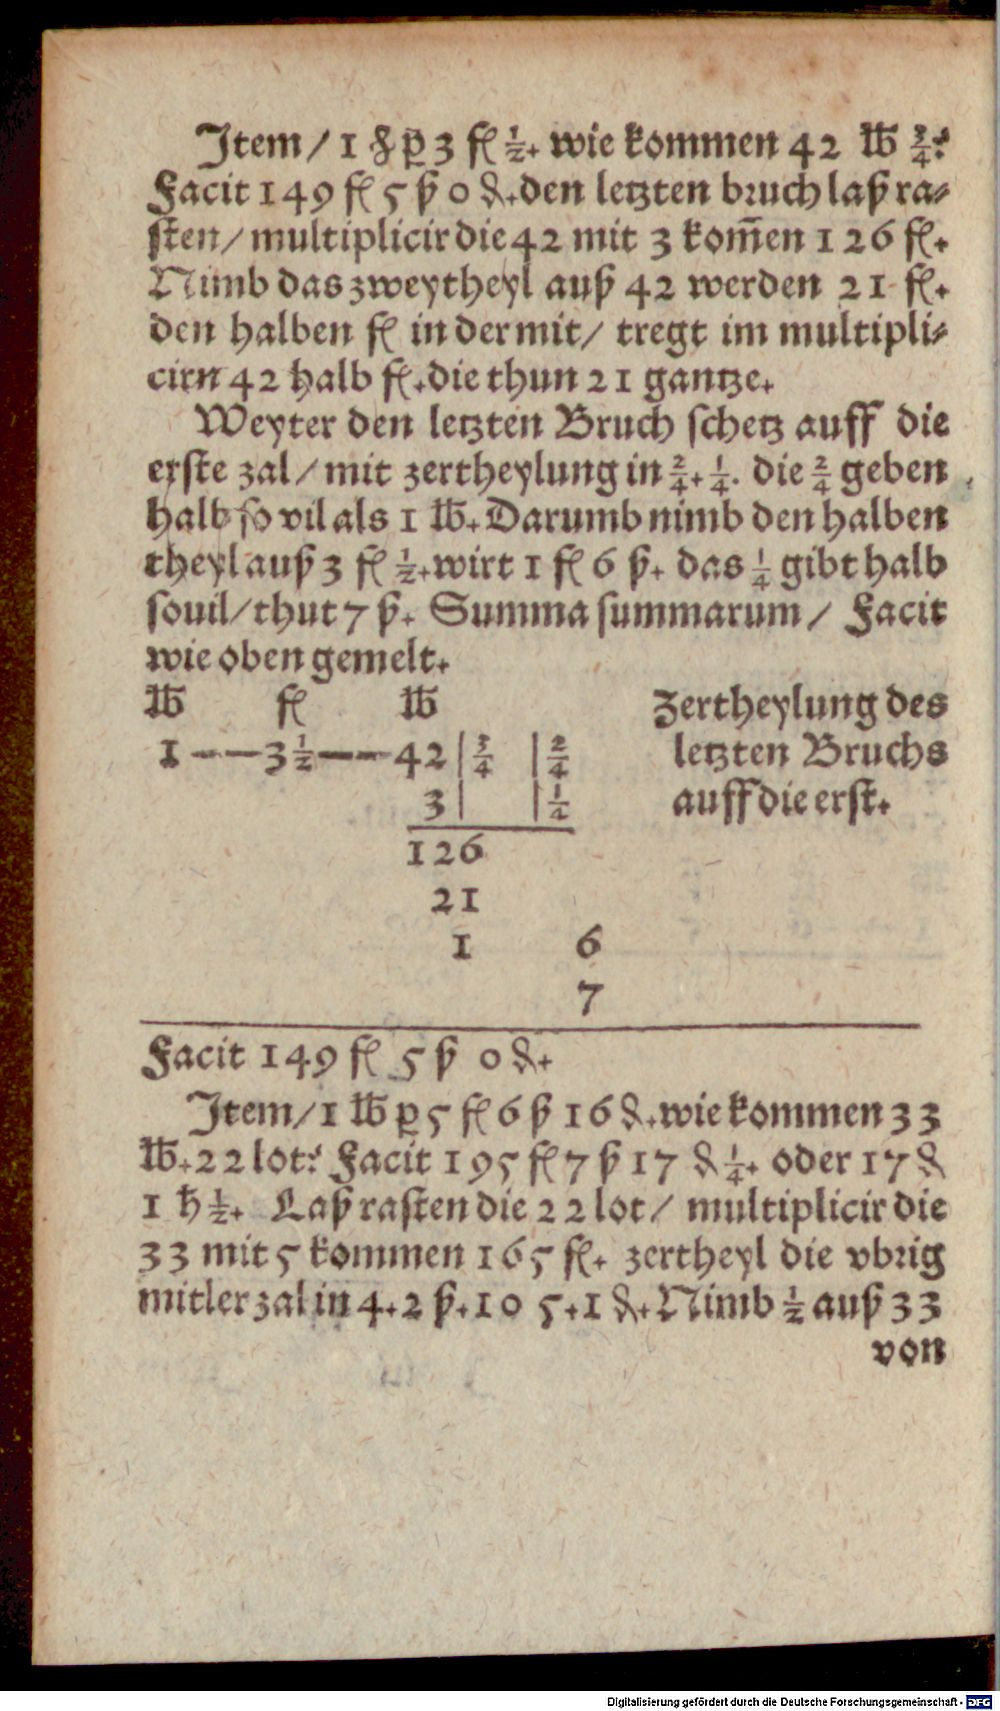 Item/ 1 ℔ ꝑ 3 fl ½. wie kommen 42 ℔ ¾?
Facit 149 fl 5 ß 0 ₰. den letzten bruch laß ra⸗
sten/ multiplicir die 42 mit 3 kom̄en 126 fl.
Nimb das zweytheyl auß 42 werden 21 fl.
den halben fl in der mit/ tregt im multipli⸗
cirn 42 halb fl. die thun 21 gantze.
Weyter den letzten Bruch schetz auff die
erste zal/ mit zertheylung in 2/4. 1/4. die 2/4 geben
halb so vil als 1 ℔. Darumb nimb den halben
theyl auß 3 fl ½. wirt 1 fl 6 ß. das ¼ gibt halb
souil/ thut 7 ß. Summa summarum/ Facit
wie oben gemelt.
℔ fl ℔ Zertheylung des
1 — — 3 ½ — — 42 | ¾ | 2/4 letzten Bruchs
3 | | ¼ auff die erst.
126
21
1 6
7
Facit 149 fl 5 ß 0 ₰.
Item/ 1 ℔ ꝑ 5 fl 6 ß 16 ₰. wie kommen 33
℔. 22 lot? Facit 195 fl 7 ß 17 ₰ ¼. oder 17 ₰
1 ħ ½. Laß rasten die 22 lot/ multiplicir die
33 mit 5 kommen 165 fl. zertheyl die vbrig
mitler zal in 4. 2 ß. 10 5. 1 ₰. Nimb ½ auß 33
von
Digitalisierung gefördert durch die Deutsche Forschungsgemeinschaft - DFG